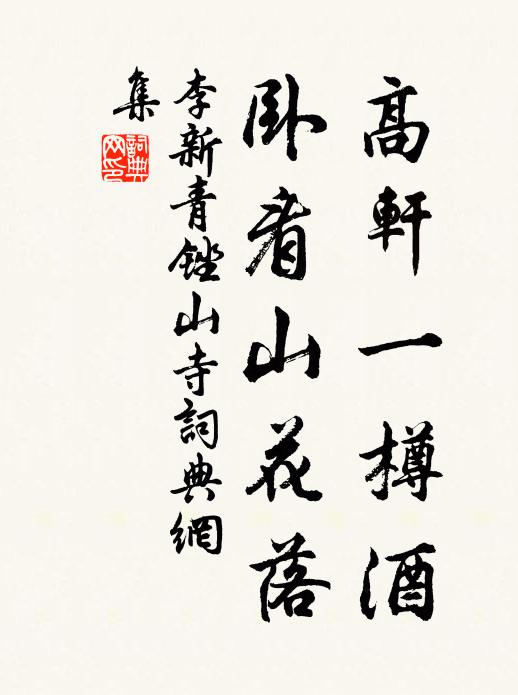 高軒一樽酒
卧看山花落
李新青鏗山寺詞典網
集
詞典網印